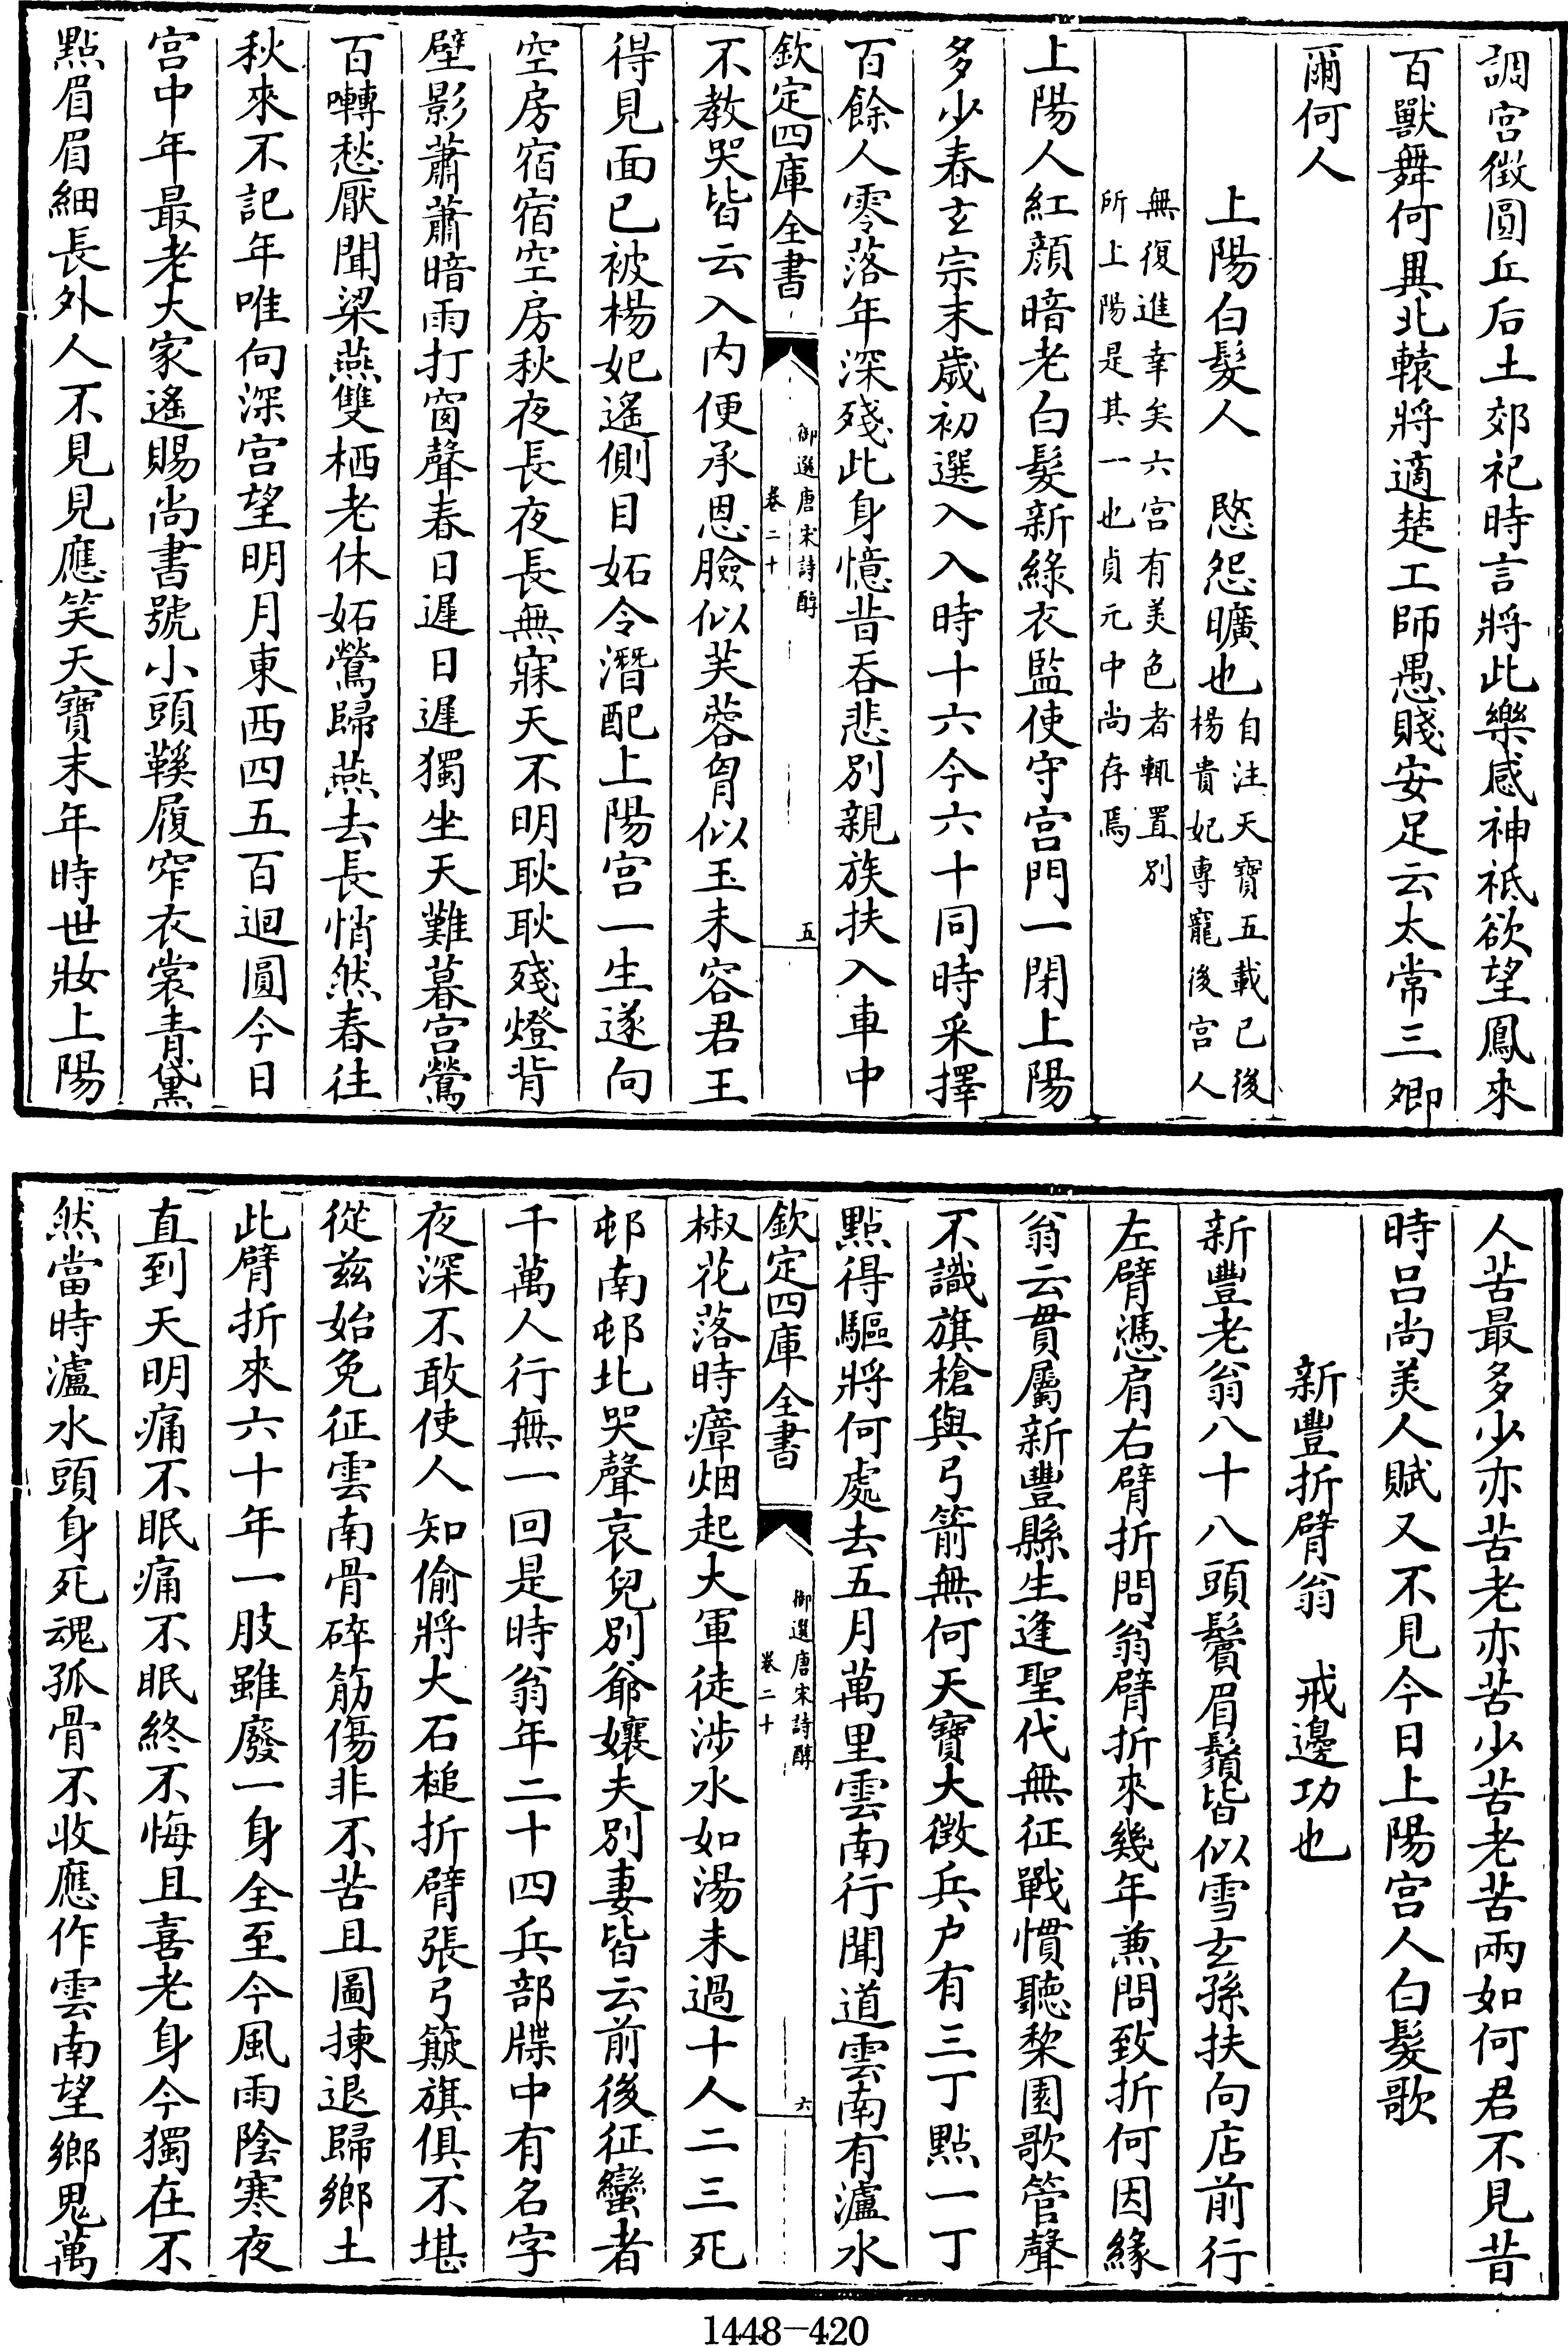 調宮徵圓丘后土郊祀時言將此樂感神祗欲望鳳來
百獸舞何異北轅將適楚工師愚賤安足云太常三卿
爾何人
上陽白髮人　愍怨曠也
自注天寶五載已後
楊貴妃專寵後宮人
無復進幸矣六宮有美色者輒置別
所上陽是其一也貞元中尚存焉
上陽人紅顏暗老白髮新綠衣監使守宮門一閉上陽
多少春玄宗末歲初選入入時十六今六十同時采擇
百餘人零落年深殘此身憶昔吞悲別親族扶入車中
欽定四庫全書
御選唐宋詩醇
卷二十
五
不教哭皆云入內便承恩臉似芙蓉胷似玉未容君王
得見面已被楊妃遙側目妬令潛配上陽宮一生遂向
空房宿宿空房秋夜長夜長無寐天不明耿耿殘燈背
壁影蕭蕭暗雨打窗聲春日遲日遲獨坐天難暮宮鶯
百囀愁厭聞梁燕雙栖老休妬鶯歸燕去長悄然春往
秋來不記年唯向深宮望明月東西四五百迴圓今日
宮中年最老大家遙賜尚書號小頭鞵履窄衣裳青黛
點眉眉細長外人不見見應笑天寶末年時世妝上陽
人苦最多少亦苦老亦苦少苦老苦兩如何君不見昔
時呂尚美人賦又不見今日上陽宮人白髮歌
新豐折臂翁　戒邊功也
新豐老翁八十八頭鬢眉鬚皆似雪玄孫扶向店前行
左臂憑肩右臂折問翁臂折來幾年兼問致折何因緣
翁云貫屬新豐縣生逢聖代無征戰慣聽棃園歌管聲
不識旗槍與弓箭無何天寶大徵兵户有三丁點一丁
點得驅將何處去五月萬里雲南行聞道雲南有瀘水
欽定四庫全書
御選唐宋詩醇
卷二十
六
椒花落時瘴烟起大軍徒涉水如湯未過十人二三死
邨南邨北哭聲哀兒別爺孃夫別妻皆云前後征蠻者
千萬人行無一回是時翁年二十四兵部牒中有名字
夜深不敢使人知偷將大石槌折臂張弓簸旗俱不堪
從兹始免征雲南骨碎筋傷非不苦且圖揀退歸鄉土
此臂折來六十年一肢雖廢一身全至今風雨陰寒夜
直到天明痛不眠痛不眠終不悔且喜老身今獨在不
然當時瀘水頭身死魂孤骨不收應作雲南望鄉鬼萬
1448-420